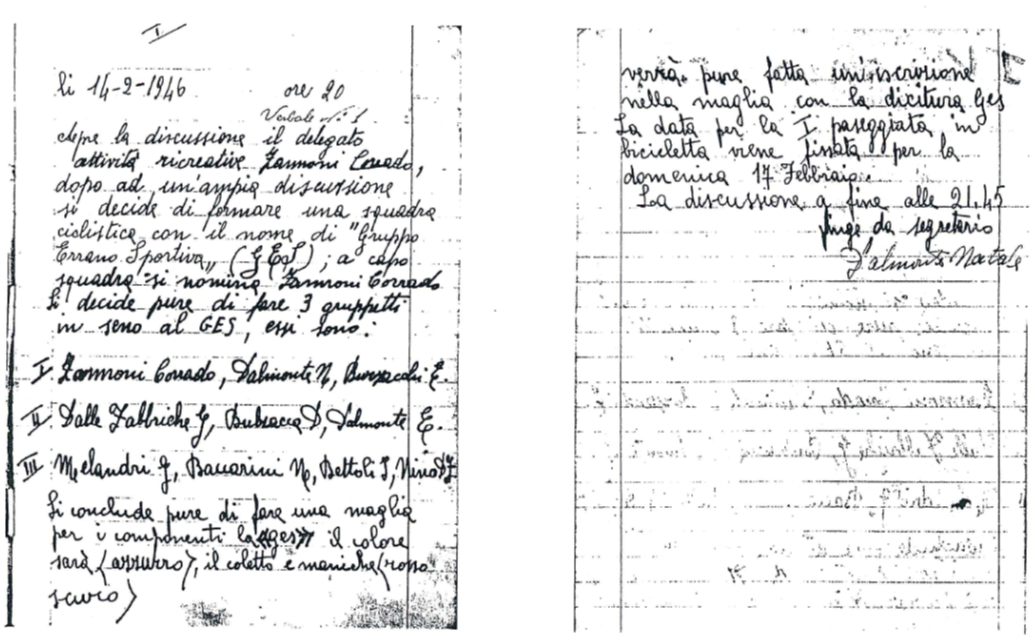 I
li 14-2-1946 ore 20
Verbale N° 1
Apre la discussione il delegato
attività ricreative Zannoni Corrado,
dopo ad un'ampia discussione
si decide di formare una squadra
ciclistica con il nome di "Gruppo
Errano Sportivo,, (GES); a capo
squadra si nomina Zannoni Corrado
Si decide pure di fare 3 gruppetti
in seno al GES, essi sono:
I Zannoni Corrado, Dalmonte N,
II Dalle Fabbriche G, Bubsacca D, Dalmonte E.
III Melandri G, Baccarini N, Bettoli I,
Si conclude pure di fare una maglia
per i componenti la «ges» il colore
sarà (azzurro), il coletto e maniche (rosso
scuro)
verrà pure fatta un'iscrizione
nella maglia con la dicitura Ges
La data per la I paseggiata in
bicicletta viene fissata per la
domenica 17 Febbraio.
La discussione a fine alle 21,45
funge da segretario
Dalmonte Natale